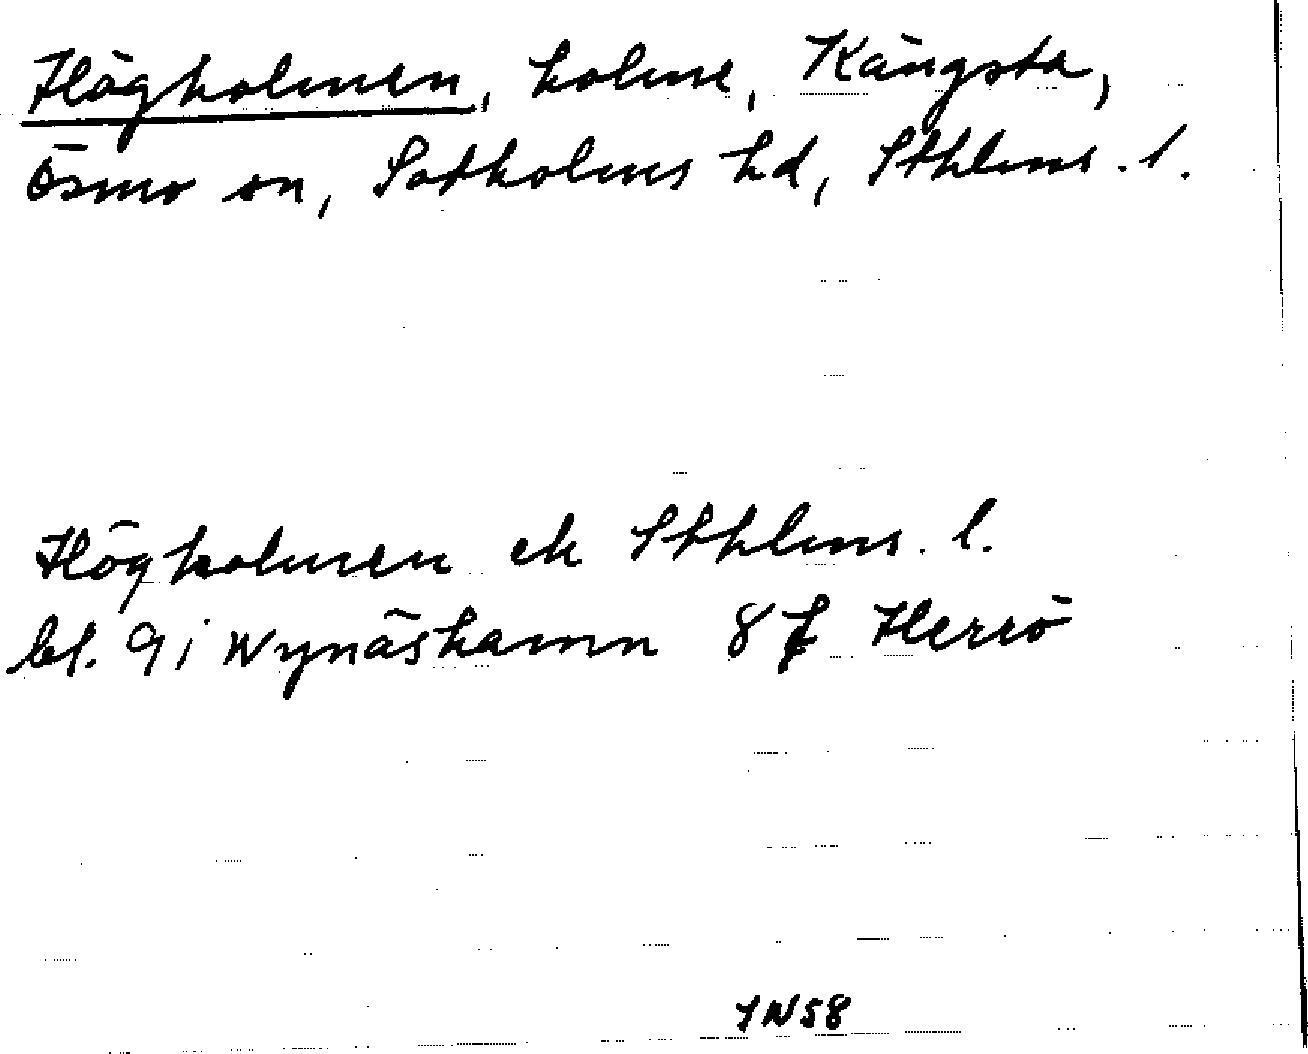 Högholmen, holme, Kängsta,
Ösmo sn, Sotholms hd, Sthlms. l.
Högholmen ek Sthlms. l.
bl. 9i Nynäshamn 8f Herrö